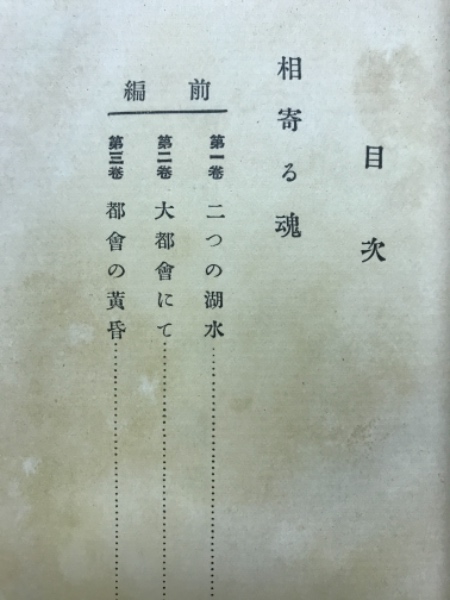 目次
相寄る魂
前編
第一巻 二つの湖水
第二巻 大都會にて
第三巻 都會の黄昏